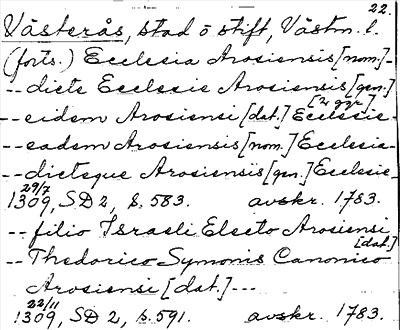 22.
Västerås, stad o stift, Västm. l.
(forts.) Ecclesia Arosiensis [nom.] -
-- dicte Ecclesie Arosiensis [gen.]
[2 ggr]
-- eidem Arosiensi [dat.] Ecclesie -
-- eadem Arosiensis [nom.] Ecclesia -
-- dicteque Arosiensis [gen.] Ecclesie -
29/7
1309, SD 2, s. 583. avskr. 1783.
-- filio Israeli Electo Arosiensi
[dat.]
-- Thedorico Symonis Canonico
Arosiensi [dat.] ---
22/11
1309, SD 2, s. 591. avskr. 1783.